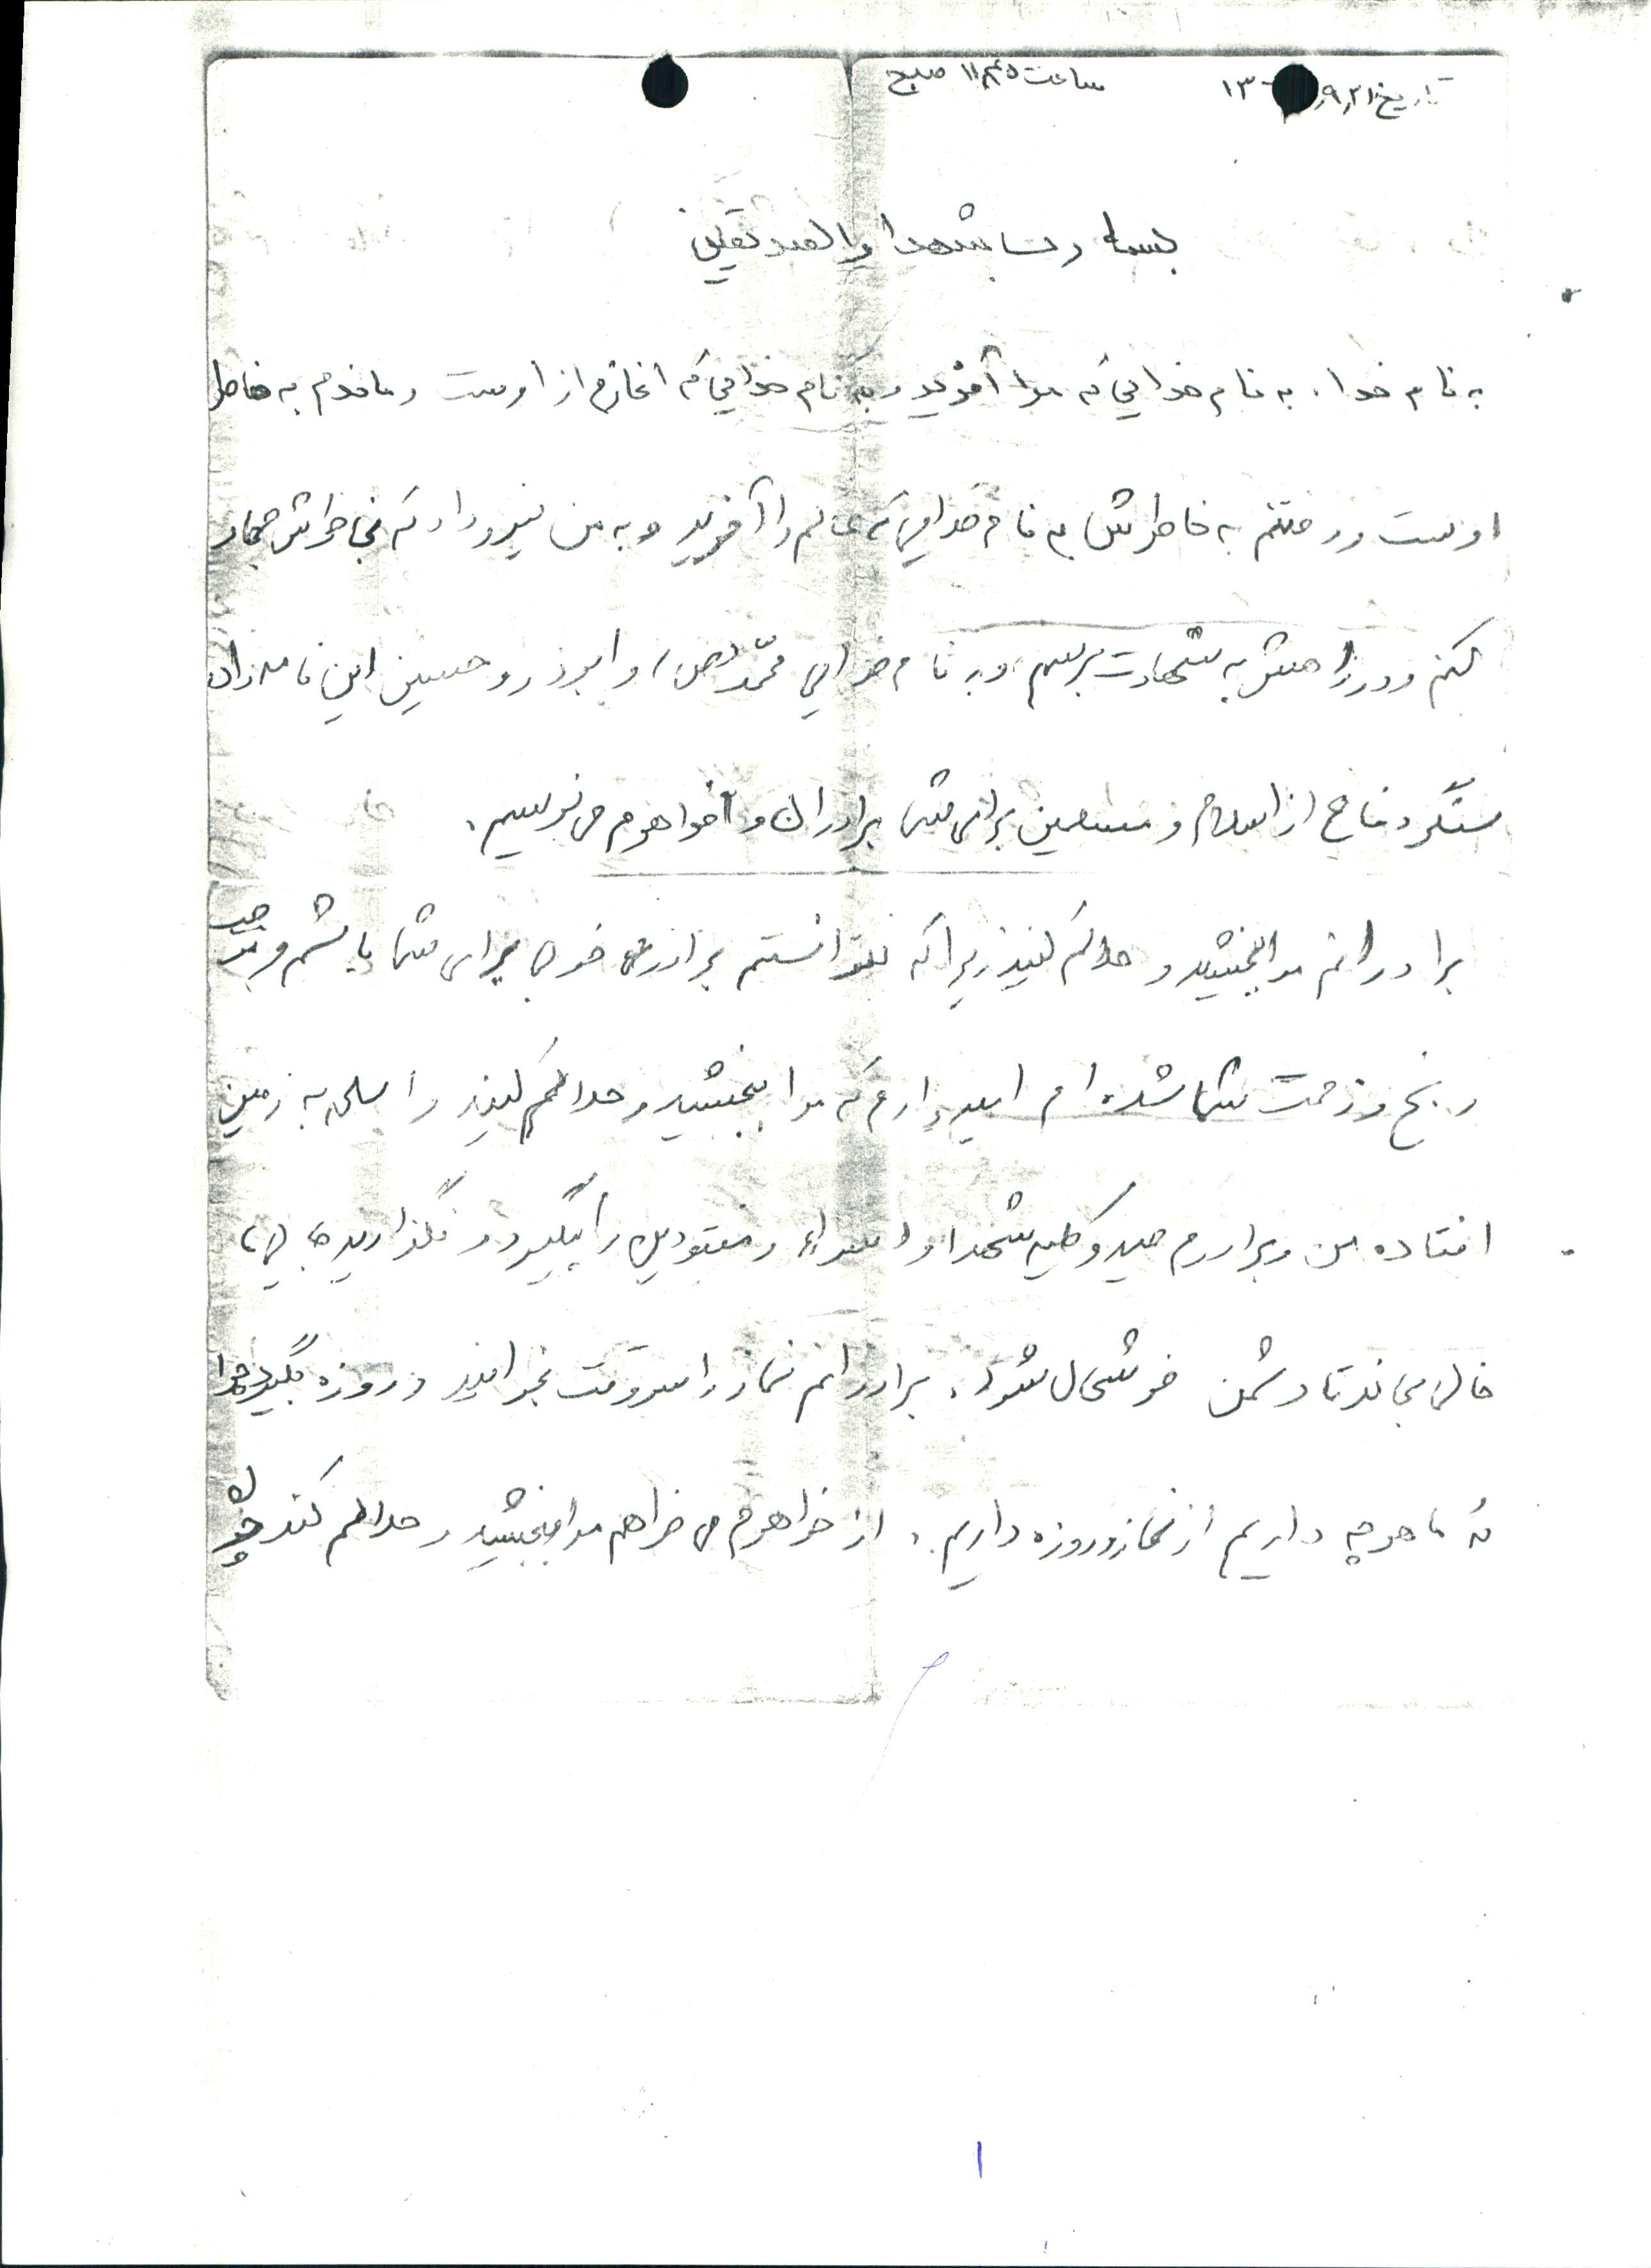 تاریخ ۹٫۲۱ ۱۳ ساعت ۱۱٫۴۵ صبح
بسمه رب الشهدا والصدیقین
به نام خدا، به نام خدایی که مرا آفرید و به نام خدایی که اغازم از اوست و ماندم به خاطر
اوست و رفتنم به خاطرش به نام خدایی که عالم را آفرید و به من نیرو داد که بخاطرش جهاد
کنم و در راهش به شهادت برسم، و به نام خدای محمّد (ص) و ابوذر و حسین این نامه را در
سنگر دفاع از اسلام و مسلمین برای شما برادران و خواهرم می نویسم.
برادرانم مرا ببخشید و حلالم کنید زیرا که نتوانستم برادری خوبی برای شما باشم و موجب
رنج و زحمت شما شده ام امید دارم که مرا ببخشید و حلالم کنید و اسلحه به زمین
افتاده من و برادرم و کلیه شهدا و اسراء و مفقودین را بگیرد و نگذارید جای ما
خالی بماند تا دشمن خوشحال شود. برادرانم نماز را سروقت بخوانید و روزه بگیرید چرا
که ما هرچه داریم از نماز و روزه داریم. از خواهرم می خواهم مرا ببخشید و حلالم کند چون
۱